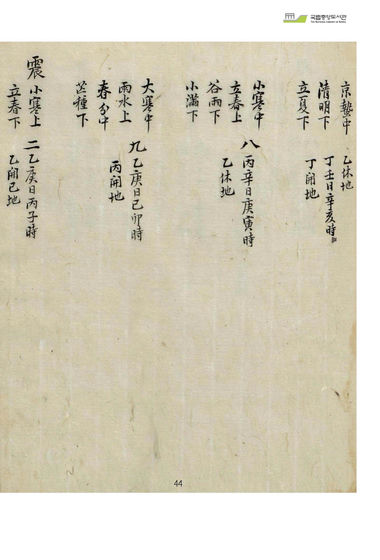 국립중앙도서관
京蟄中 乙休地
清明下 丁壬日辛亥時
立夏下 丁開地
小寒中 八 丙辛日庚寅時
立春上 乙休地
谷雨下
小滿下
大寒中 九 乙庚日己卯時
雨水上 丙開地
春分中
芒種下
震 小寒上 二 乙庚日丙子時
立春下 乙開己地
44